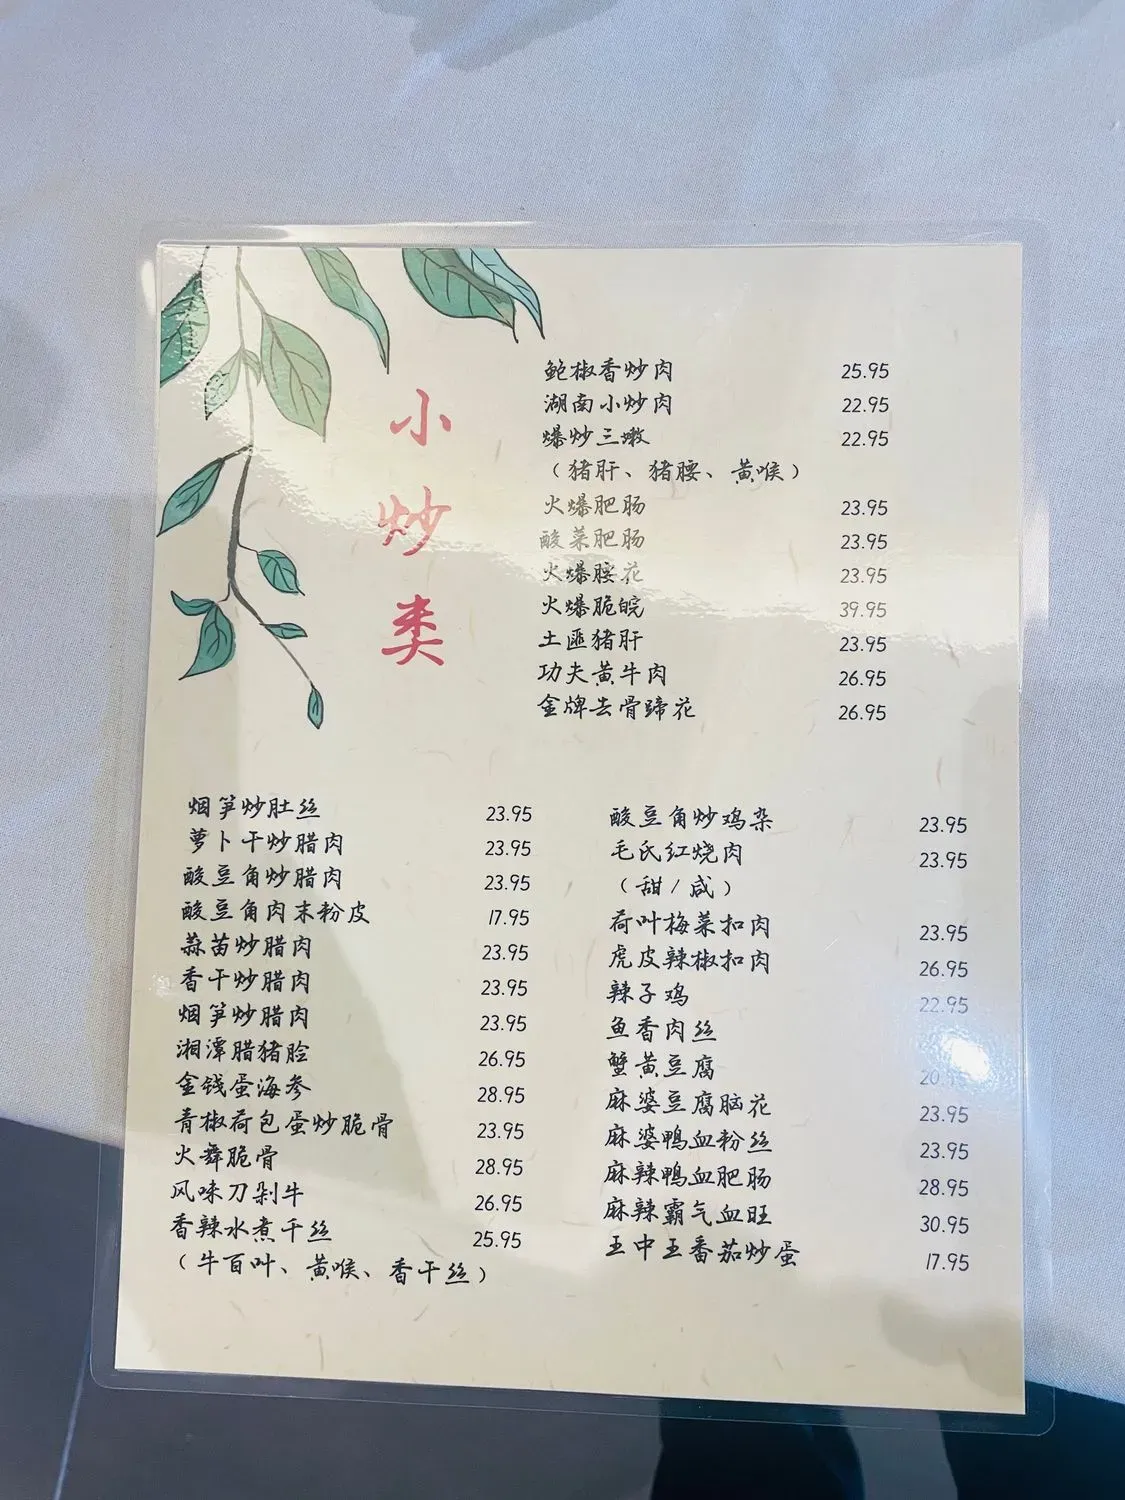 小炒类
鲍椒香炒肉 25.95
湖南小炒肉 22.95
爆炒三嫩 22.95
（猪肝、猪腰、黄喉）
火爆肥肠 23.95
酸菜肥肠 23.95
火爆腰花 23.95
火爆脆皖 39.95
土匪猪肝 23.95
功夫黄牛肉 26.95
金牌去骨蹄花 26.95
烟笋炒肚丝 23.95
萝卜干炒腊肉 23.95
酸豆角炒腊肉 23.95
酸豆角肉末粉皮 17.95
蒜苗炒腊肉 23.95
香干炒腊肉 23.95
烟笋炒腊肉 23.95
湘潭腊猪脸 26.95
金钱蛋海参 28.95
青椒荷包蛋炒脆骨 23.95
火舞脆骨 28.95
风味刀剁牛 26.95
香辣水煮干丝 25.95
（牛百叶、黄喉、香干丝）
酸豆角炒鸡杂 23.95
毛氏红烧肉 23.95
（甜/咸）
荷叶梅菜扣肉 23.95
虎皮辣椒扣肉 26.95
辣子鸡 22.95
鱼香肉丝
蟹黄豆腐 20.95
麻婆豆腐脑花 23.95
麻婆鸭血粉丝 23.95
麻辣鸭血肥肠 28.95
麻辣霸气血旺 30.95
王中王番茄炒蛋 17.95